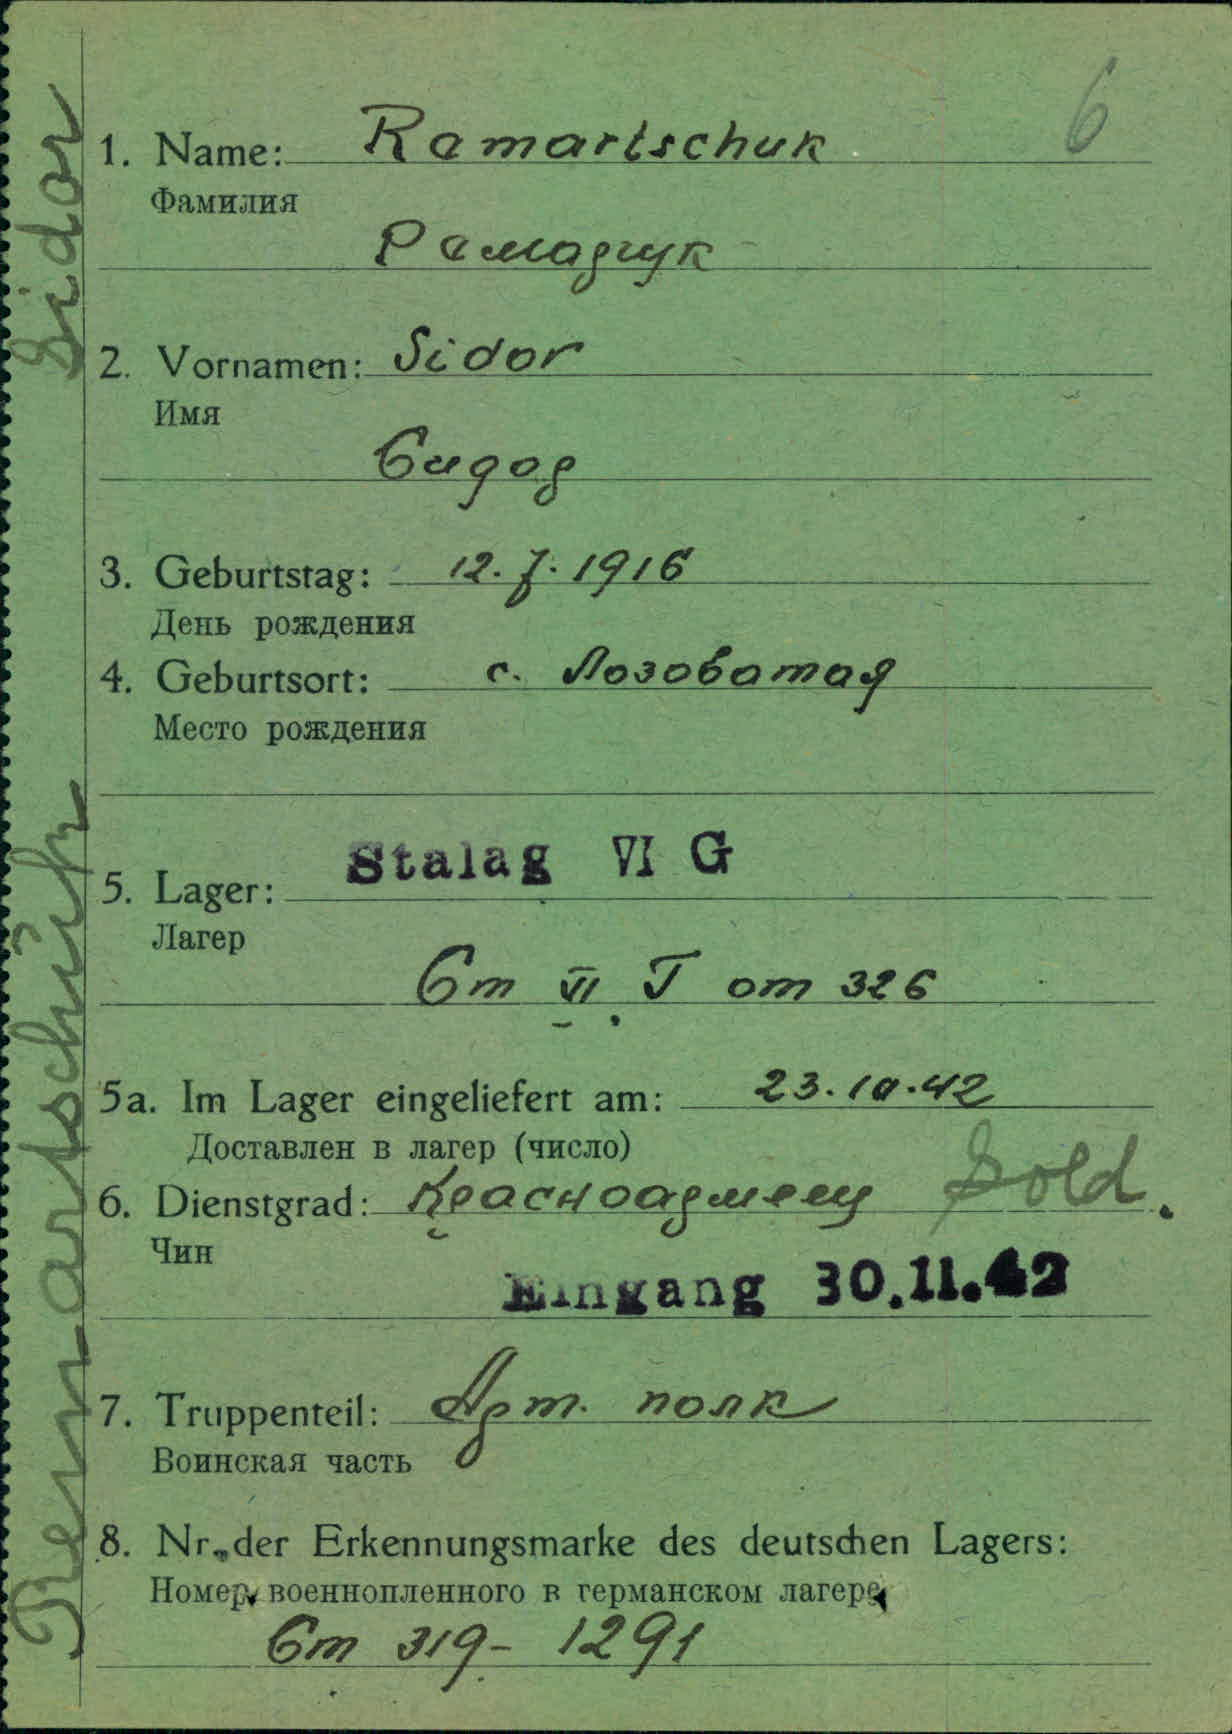 6
1. Name: Ramartschuk
Фамилия
Рамарчук
2. Vornamen: Sidor
Имя
Сидор
3. Geburtstag: 12. 7. 1916
День рождения
4. Geburtsort: с. Лозоватая
Место рождения
5. Lager: Stalag VI G
Лагер
Ст VI J от 326
5a. Im Lager eingeliefert am: 23.10.42
Доставлен в лагер (число)
6. Dienstgrad: Красноармеец Sold.
Чин
Eingang 30.11.42
7. Truppenteil: Арт. полк
Воинская часть
8. Nr. der Erkennungsmarke des deutschen Lagers:
Номер военнопленного в германском лагере
Ст 319- 1291
Remartschuk Sidor